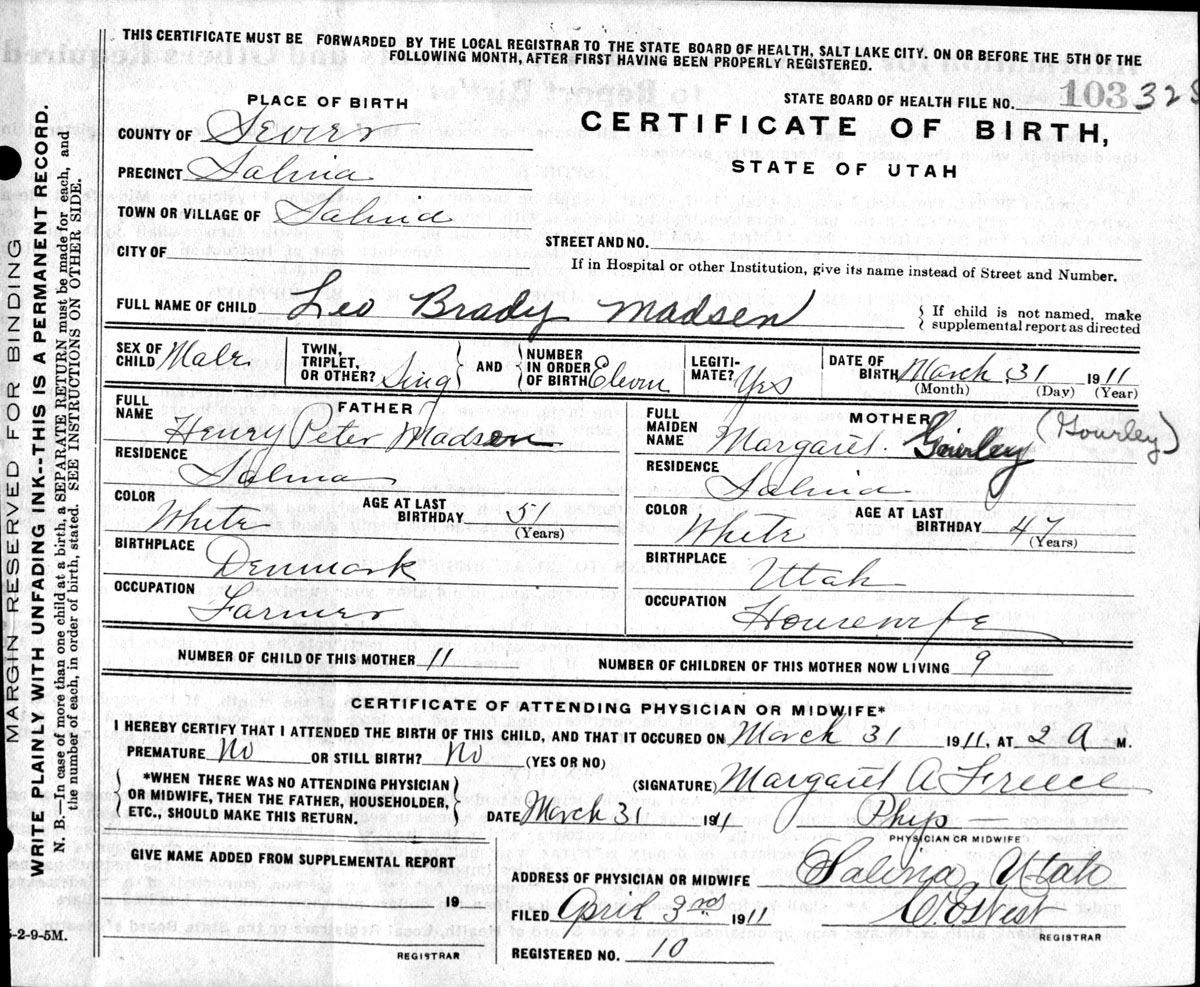 THIS CERTIFICATE MUST BE FORWARDED BY THE LOCAL REGISTRAR TO THE STATE BOARD OF HEALTH, SALT LAKE CITY, ON OR BEFORE THE 5TH OF THE
FOLLOWING MONTH, AFTER FIRST HAVING BEEN PROPERLY REGISTERED.
STATE BOARD OF HEALTH FILE NO. 103 328
PLACE OF BIRTH
CERTIFICATE OF BIRTH,
STATE OF UTAH
COUNTY OF Sevier
PRECINCT Salina
TOWN OR VILLAGE OF Salina
STREET AND NO.
CITY OF
If in Hospital or other Institution, give its name instead of Street and Number.
FULL NAME OF CHILD Leo Brady Madsen
If child is not named, make
supplemental report as directed
SEX OF CHILD Male
TWIN, TRIPLET, OR OTHER? Sing
AND
NUMBER IN ORDER OF BIRTH Elevn
LEGITI-MATE? Yes
DATE OF BIRTH March 31 1911
(Month) (Day) (Year)
FATHER
FULL NAME Henry Peter Madsen
RESIDENCE Salina
COLOR White AGE AT LAST BIRTHDAY 51
(Years)
BIRTHPLACE Denmark
OCCUPATION Farmer
MOTHER
FULL MAIDEN NAME Margaret Gourley (Gourley)
RESIDENCE Salina
COLOR White AGE AT LAST BIRTHDAY 47
(Years)
BIRTHPLACE Utah
OCCUPATION Housewife
NUMBER OF CHILD OF THIS MOTHER 11 NUMBER OF CHILDREN OF THIS MOTHER NOW LIVING 9
CERTIFICATE OF ATTENDING PHYSICIAN OR MIDWIFE*
I HEREBY CERTIFY THAT I ATTENDED THE BIRTH OF THIS CHILD, AND THAT IT OCCURED ON March 31 1911, AT 2 A M.
PREMATURE No OR STILL BIRTH? No (YES OR NO)
*WHEN THERE WAS NO ATTENDING PHYSICIAN
OR MIDWIFE, THEN THE FATHER, HOUSEHOLDER,
ETC., SHOULD MAKE THIS RETURN.
(SIGNATURE) Margaret A Freece
DATE March 31 1911 Phys
PHYSICIAN OR MIDWIFE
GIVE NAME ADDED FROM SUPPLEMENTAL REPORT
19
REGISTRAR
ADDRESS OF PHYSICIAN OR MIDWIFE Salina Utah
FILED April 3rd 1911 West
REGISTRAR
REGISTERED NO. 10
MARGIN RESERVED FOR BINDING
WRITE PLAINLY WITH UNFADING INK--THIS IS A PERMANENT RECORD.
N. B.—In case of more than one child at a birth, a SEPARATE RETURN must be made for each, and
the number of each, in order of birth, stated. SEE INSTRUCTIONS ON OTHER SIDE.
5-2-9-5M.